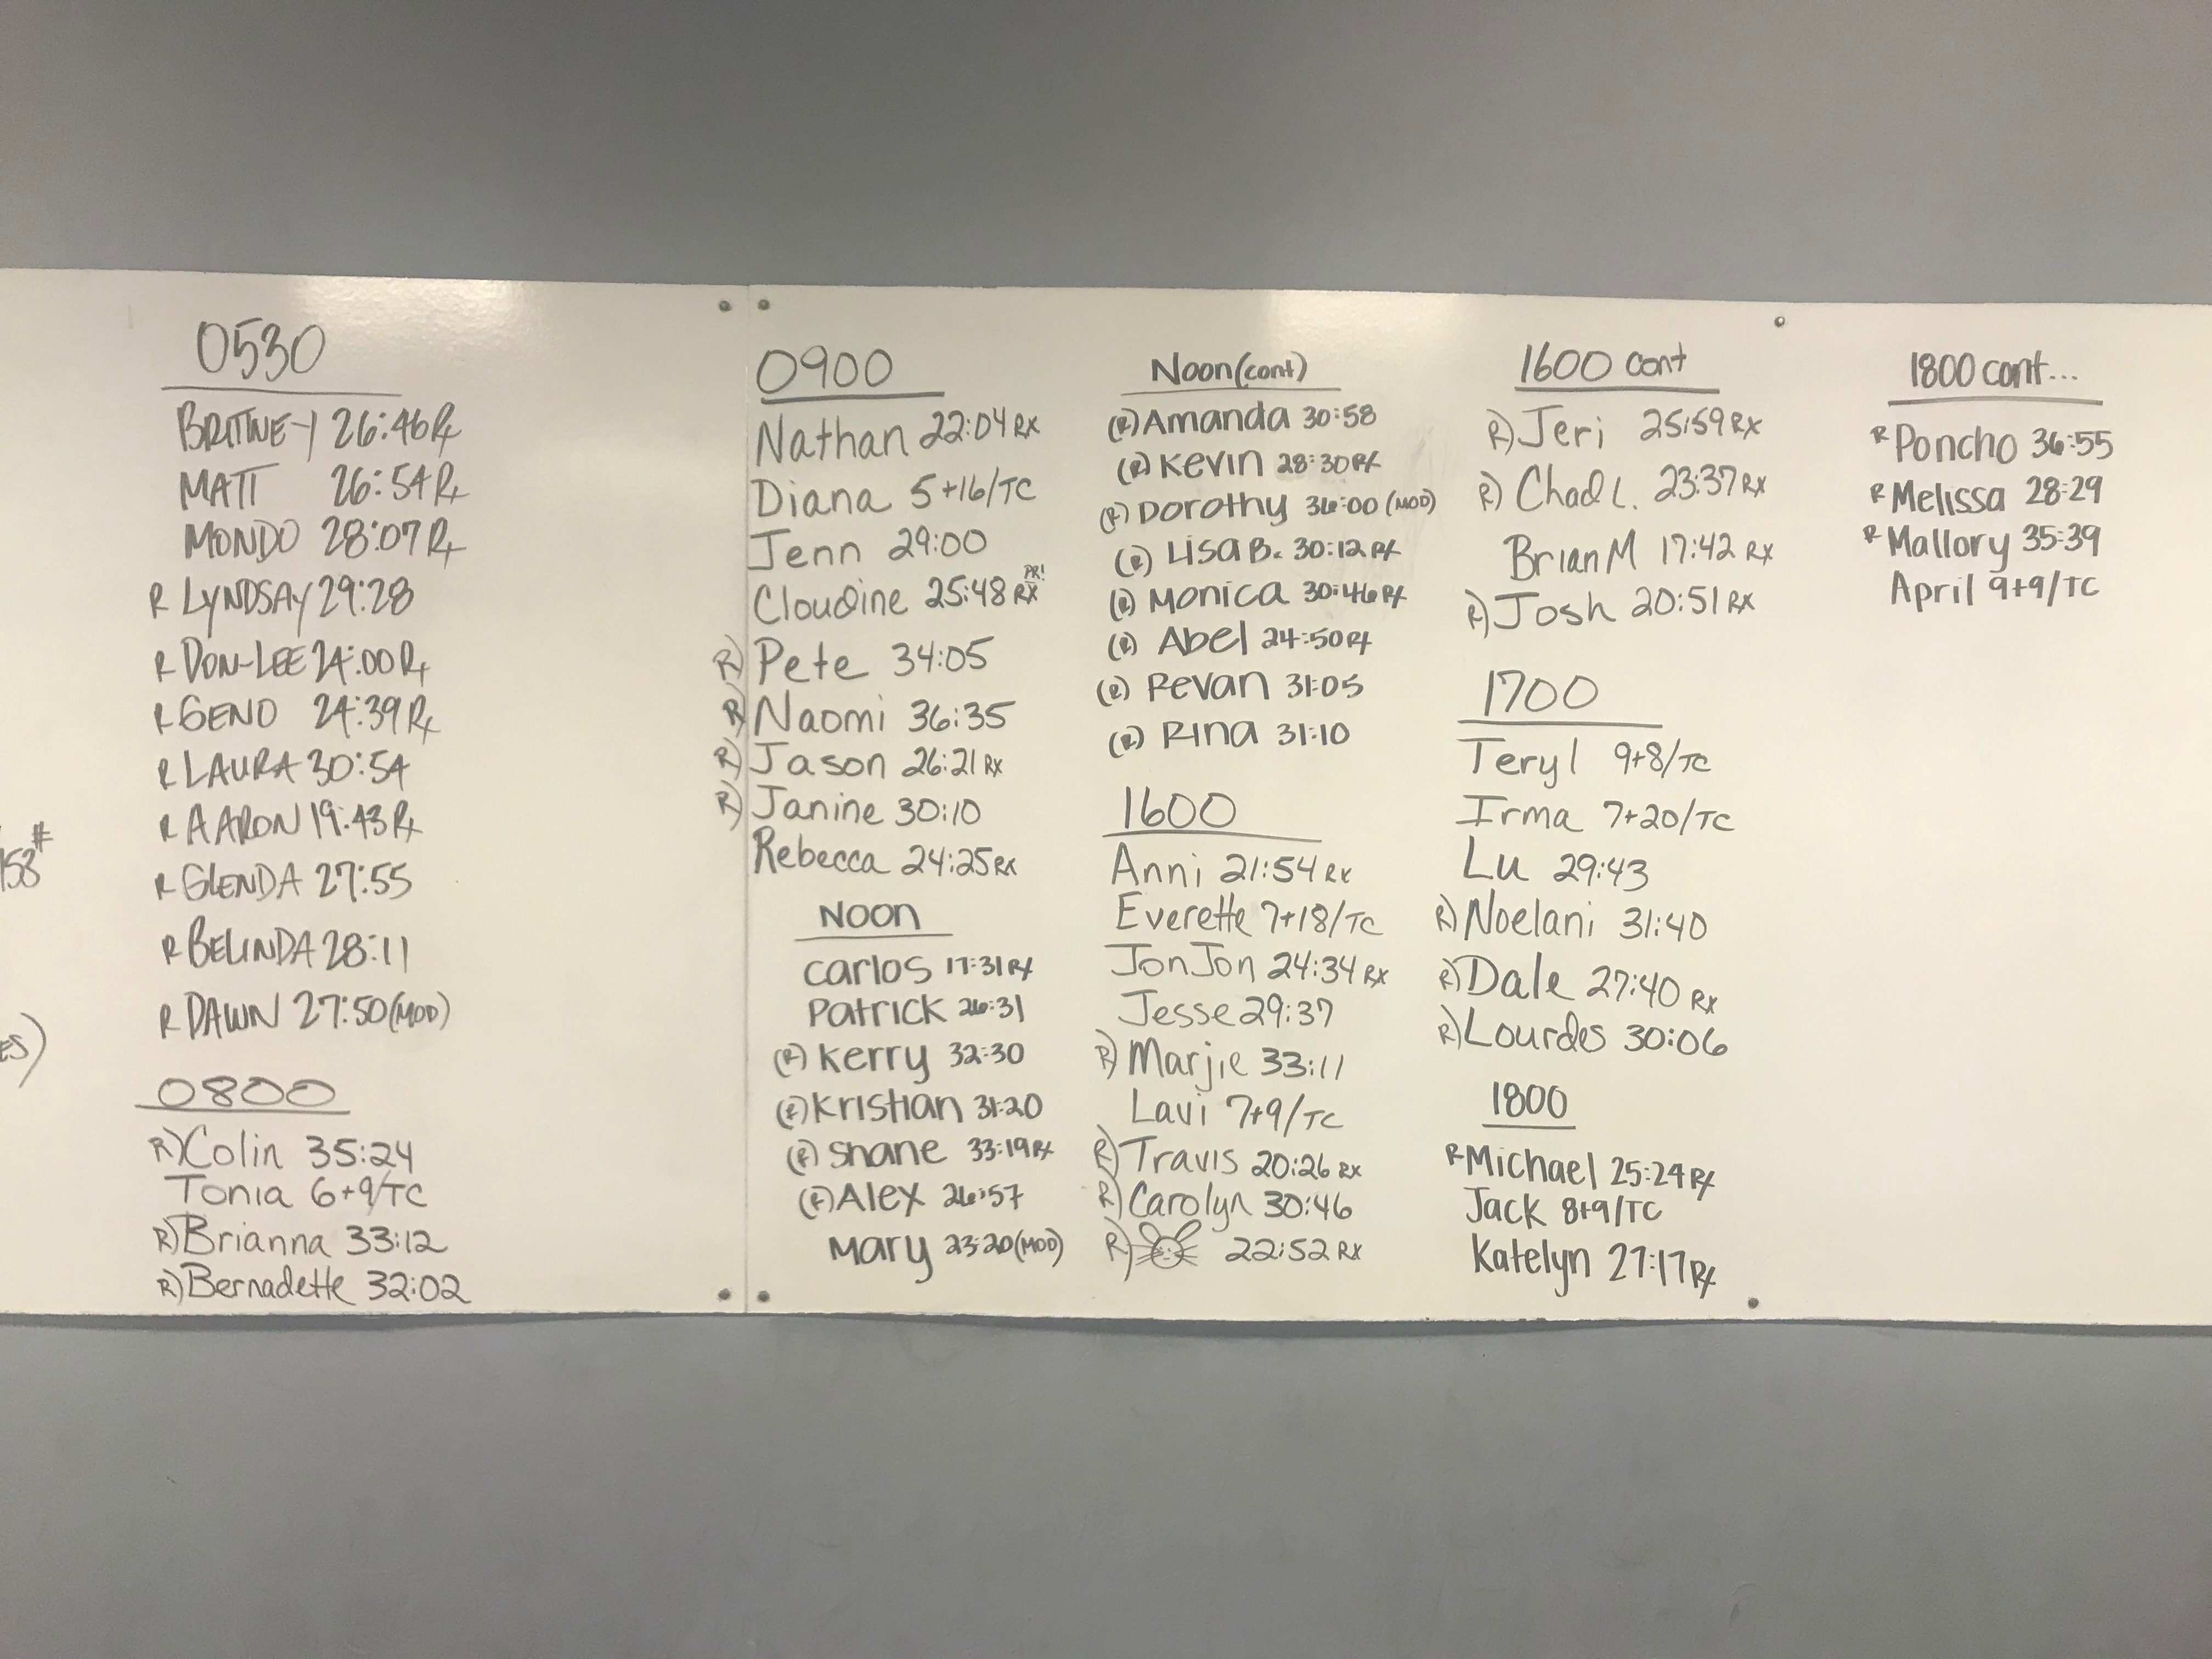 58#
ES)
0530
BRITTNEY 26:46 Rx
MATT 26:54 Rx
MONDO 28:07 Rx
R LYNDSAY 29:28
R DON-LEE 24:00 Rx
R GENO 24:39 Rx
R LAURA 30:54
R AARON 19:43 Rx
R GLENDA 27:55
R BELINDA 28:11
R DAWN 27:50 (MOD)
0800
R) Colin 35:24
Tonia 6+9/TC
R) Brianna 33:12
R) Bernadette 32:02
0900
Nathan 22:04 RX
Diana 5+16/TC
Jenn 29:00
PR!
Cloudine 25:48 RX
R) Pete 34:05
R) Naomi 36:35
R) Jason 26:21 RX
R) Janine 30:10
Rebecca 24:25 RX
NOON
Carlos 17:31 RX
Patrick 26:31
(R) Kerry 32:30
(R) Kristian 31:20
(R) Shane 33:19 RX
(R) Alex 26:57
Mary 23:20 (MOD)
Noon (cont)
(R) Amanda 30:58
(R) Kevin 28:30 RX
(R) Dorothy 36:00 (MOD)
(R) Lisa B. 30:12 RX
(R) Monica 30:46 RX
(R) Abel 24:50 RX
(R) Revan 31:05
(R) Rina 31:10
1600
Anni 21:54 RX
Everette 7+18/TC
JonJon 24:34 RX
Jesse 29:37
R) Marjie 33:11
Lavi 7+9/TC
R) Travis 20:26 RX
R) Carolyn 30:46
R) 22:52 RX
1600 cont
R) Jeri 25:59 RX
R) Chad L. 23:37 RX
Brian M 17:42 RX
R) Josh 20:51 RX
1700
Teryl 9+8/TC
Irma 7+20/TC
Lu 29:43
R) Noelani 31:40
R) Dale 27:40 RX
R) Lourdes 30:06
1800
R Michael 25:24 RX
Jack 8+9/TC
Katelyn 27:17 RX
1800 cont...
R Poncho 36:55
R Melissa 28:29
R Mallory 35:39
April 9+9/TC